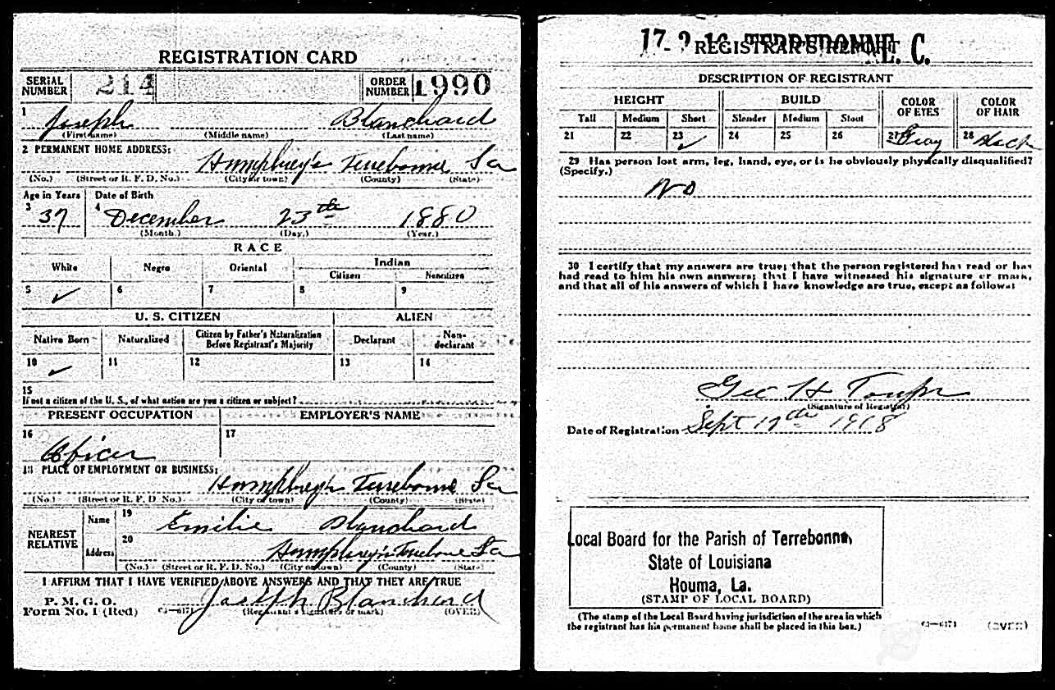 REGISTRATION CARD
SERIAL NUMBER 214 ORDER NUMBER 1990
1 Joseph Blanchard
(First name) (Middle name) (Last name)
2 PERMANENT HOME ADDRESS:
Humphrey's Terrebonne La
(No.) (Street or R. F. D. No.) (City or town) (County) (State)
Age in Years Date of Birth
3 37 4 December 23th 1880
(Month.) (Day.) (Year.)
RACE
White Negro Oriental Indian
Citizen Noncitizen
5 ✓ 6 7 8 9
U. S. CITIZEN ALIEN
Native Born Naturalized Citizen by Father's Naturalization Before Registrant's Majority Declarant Non-declarant
10 ✓ 11 12 13 14
15
If not a citizen of the U. S., of what nation are you a citizen or subject?
PRESENT OCCUPATION EMPLOYER'S NAME
16 17
Oficer
18 PLACE OF EMPLOYMENT OR BUSINESS:
Humphreys Terrebonne La
(No.) (Street or R. F. D. No.) (City or town) (County) (State)
NEAREST RELATIVE Name 19 Emilie Blanchard
Address 20 Humphreys Terrebone La
(No.) (Street or R. F. D. No.) (City or town) (County) (State)
I AFFIRM THAT I HAVE VERIFIED ABOVE ANSWERS AND THAT THEY ARE TRUE
P. M. G. O.
Form No. 1 (Red) 03-6171 Joseph Blanchard
(Registrant's signature or mark) (OVER)
17 2 16 TERREBONNE, C.
REGISTRAR'S REPORT
DESCRIPTION OF REGISTRANT
HEIGHT BUILD COLOR OF EYES COLOR OF HAIR
Tall Medium Short Slender Medium Stout
21 22 23 ✓ 24 25 26 27 Gray 28 Black
29 Has person lost arm, leg, hand, eye, or is he obviously physically disqualified?
(Specify.)
No
30 I certify that my answers are true; that the person registered has read or has
had read to him his own answers; that I have witnessed his signature or mark,
and that all of his answers of which I have knowledge are true, except as follows:
Geo H Toups
(Signature of Registrar)
Date of Registration Sept 12th 1918
Local Board for the Parish of Terrebonne,
State of Louisiana
Houma, La.
(STAMP OF LOCAL BOARD)
(The stamp of the Local Board having jurisdiction of the area in which
the registrant has his permanent home shall be placed in this box.)
03-6171 (OVER)